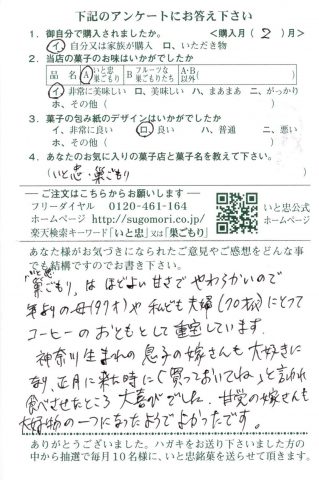 下記のアンケートにお答え下さい
1. 御自分で購入されましたか。 <購入月( 2 )月>
イ、自分又は家族が購入 ロ、いただき物
2. 当店の菓子のお味はいかがでしたか
品名 A いと忠巣ごもり B フルーツな巣ごもりたち A・B以外( )
イ、非常に美味しい ロ、美味しい ハ、まあまあ ニ、がっかり
ホ、その他( )
3. 菓子の包み紙のデザインはいかがでしたか
イ、非常に良い ロ、良い ハ、普通 ニ、悪い
ホ、その他( )
4. あなたのお気に入りの菓子店と菓子名を教えて下さい。
(いと忠・巣ごもり )
ご注文はこちらからお願いします
フリーダイヤル 0120-461-164
ホームページ http://sugomori.co.jp/
楽天検索キーワード「いと忠」又は「巣ごもり」
いと忠公式
ホームページ
あなた様がお気づきになられたご意見やご感想をどんな事
でも結構ですのでお書き下さい。
「いと忠
巣ごもり」は ほどよい甘さで やわらかいので
年よりの母(97才)や 私ども夫婦(70代)にとって
コーヒーの おともとして 重宝しています。
神奈川生まれの 息子の嫁さんも 大好きに
なり、正月に来た時に「買っておいてね」と言われ
食べさせたところ 大喜びでした。甘党の嫁さんも
大好物の一つになったようでよかったです。
ありがとうございました。ハガキをお送り下さいました方の
中から抽選で毎月10名様に、いと忠銘菓を送らせて頂きます。